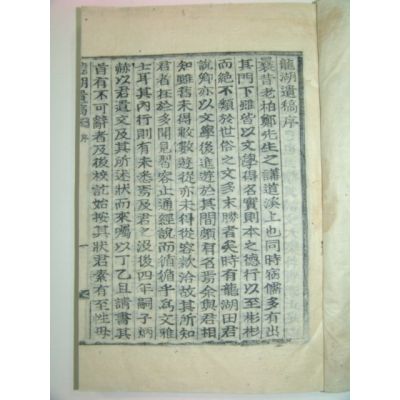 龍湖遺稿序
曩昔老柏鄭先生之講道溪上也同時宿儒多有出
其門下雖皆以文學得名實則本之德行以至彬彬
而絶不類於世俗之文多末勝者矣時有龍湖田君
說卿亦以文學後進遊於其間頗有名焉余與君相
知雖舊未得數數遊從容欵洽故其所知
君者在於多聞見習容止通經說而循循乎爲文雅
士耳其內行則有未悉焉及君之沒後四年嗣子炳
赫以君遺文及其所述狀而來囑以丁乙且請書其
首有不可辭者及後校訖始按其狀君素有至性母
龍湖遺稿 序 一